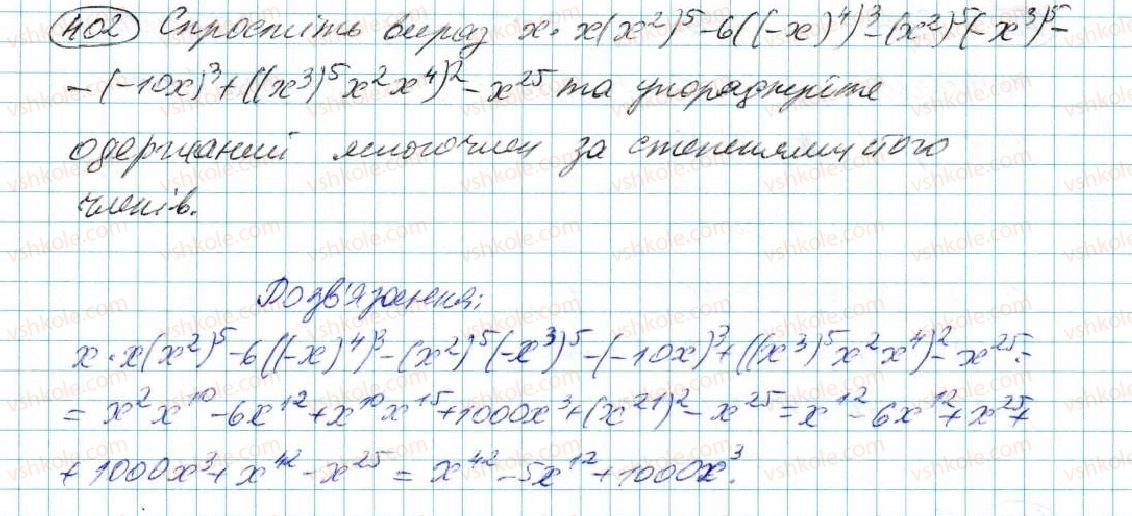 402 Спростіть вираз x · x(x²)⁵ - 6((-x)⁴)³ - (x²)⁵(-x³)⁵ -
- (-10x)³ + ((x³)⁵x²x⁴)² - x²⁵ та упорядкуйте
одержаний многочлен за степенями його
членів.
Розв'язання:
x · x(x²)⁵ - 6((-x)⁴)³ - (x²)⁵(-x³)⁵ - (-10x)³ + ((x³)⁵x²x⁴)² - x²⁵ =
= x²x¹⁰ - 6x¹² + x¹⁰x¹⁵ + 1000x³ + (x²¹)² - x²⁵ = x¹² - 6x¹² + x²⁵ +
+ 1000x³ + x⁴² - x²⁵ = x⁴² - 5x¹² + 1000x³.